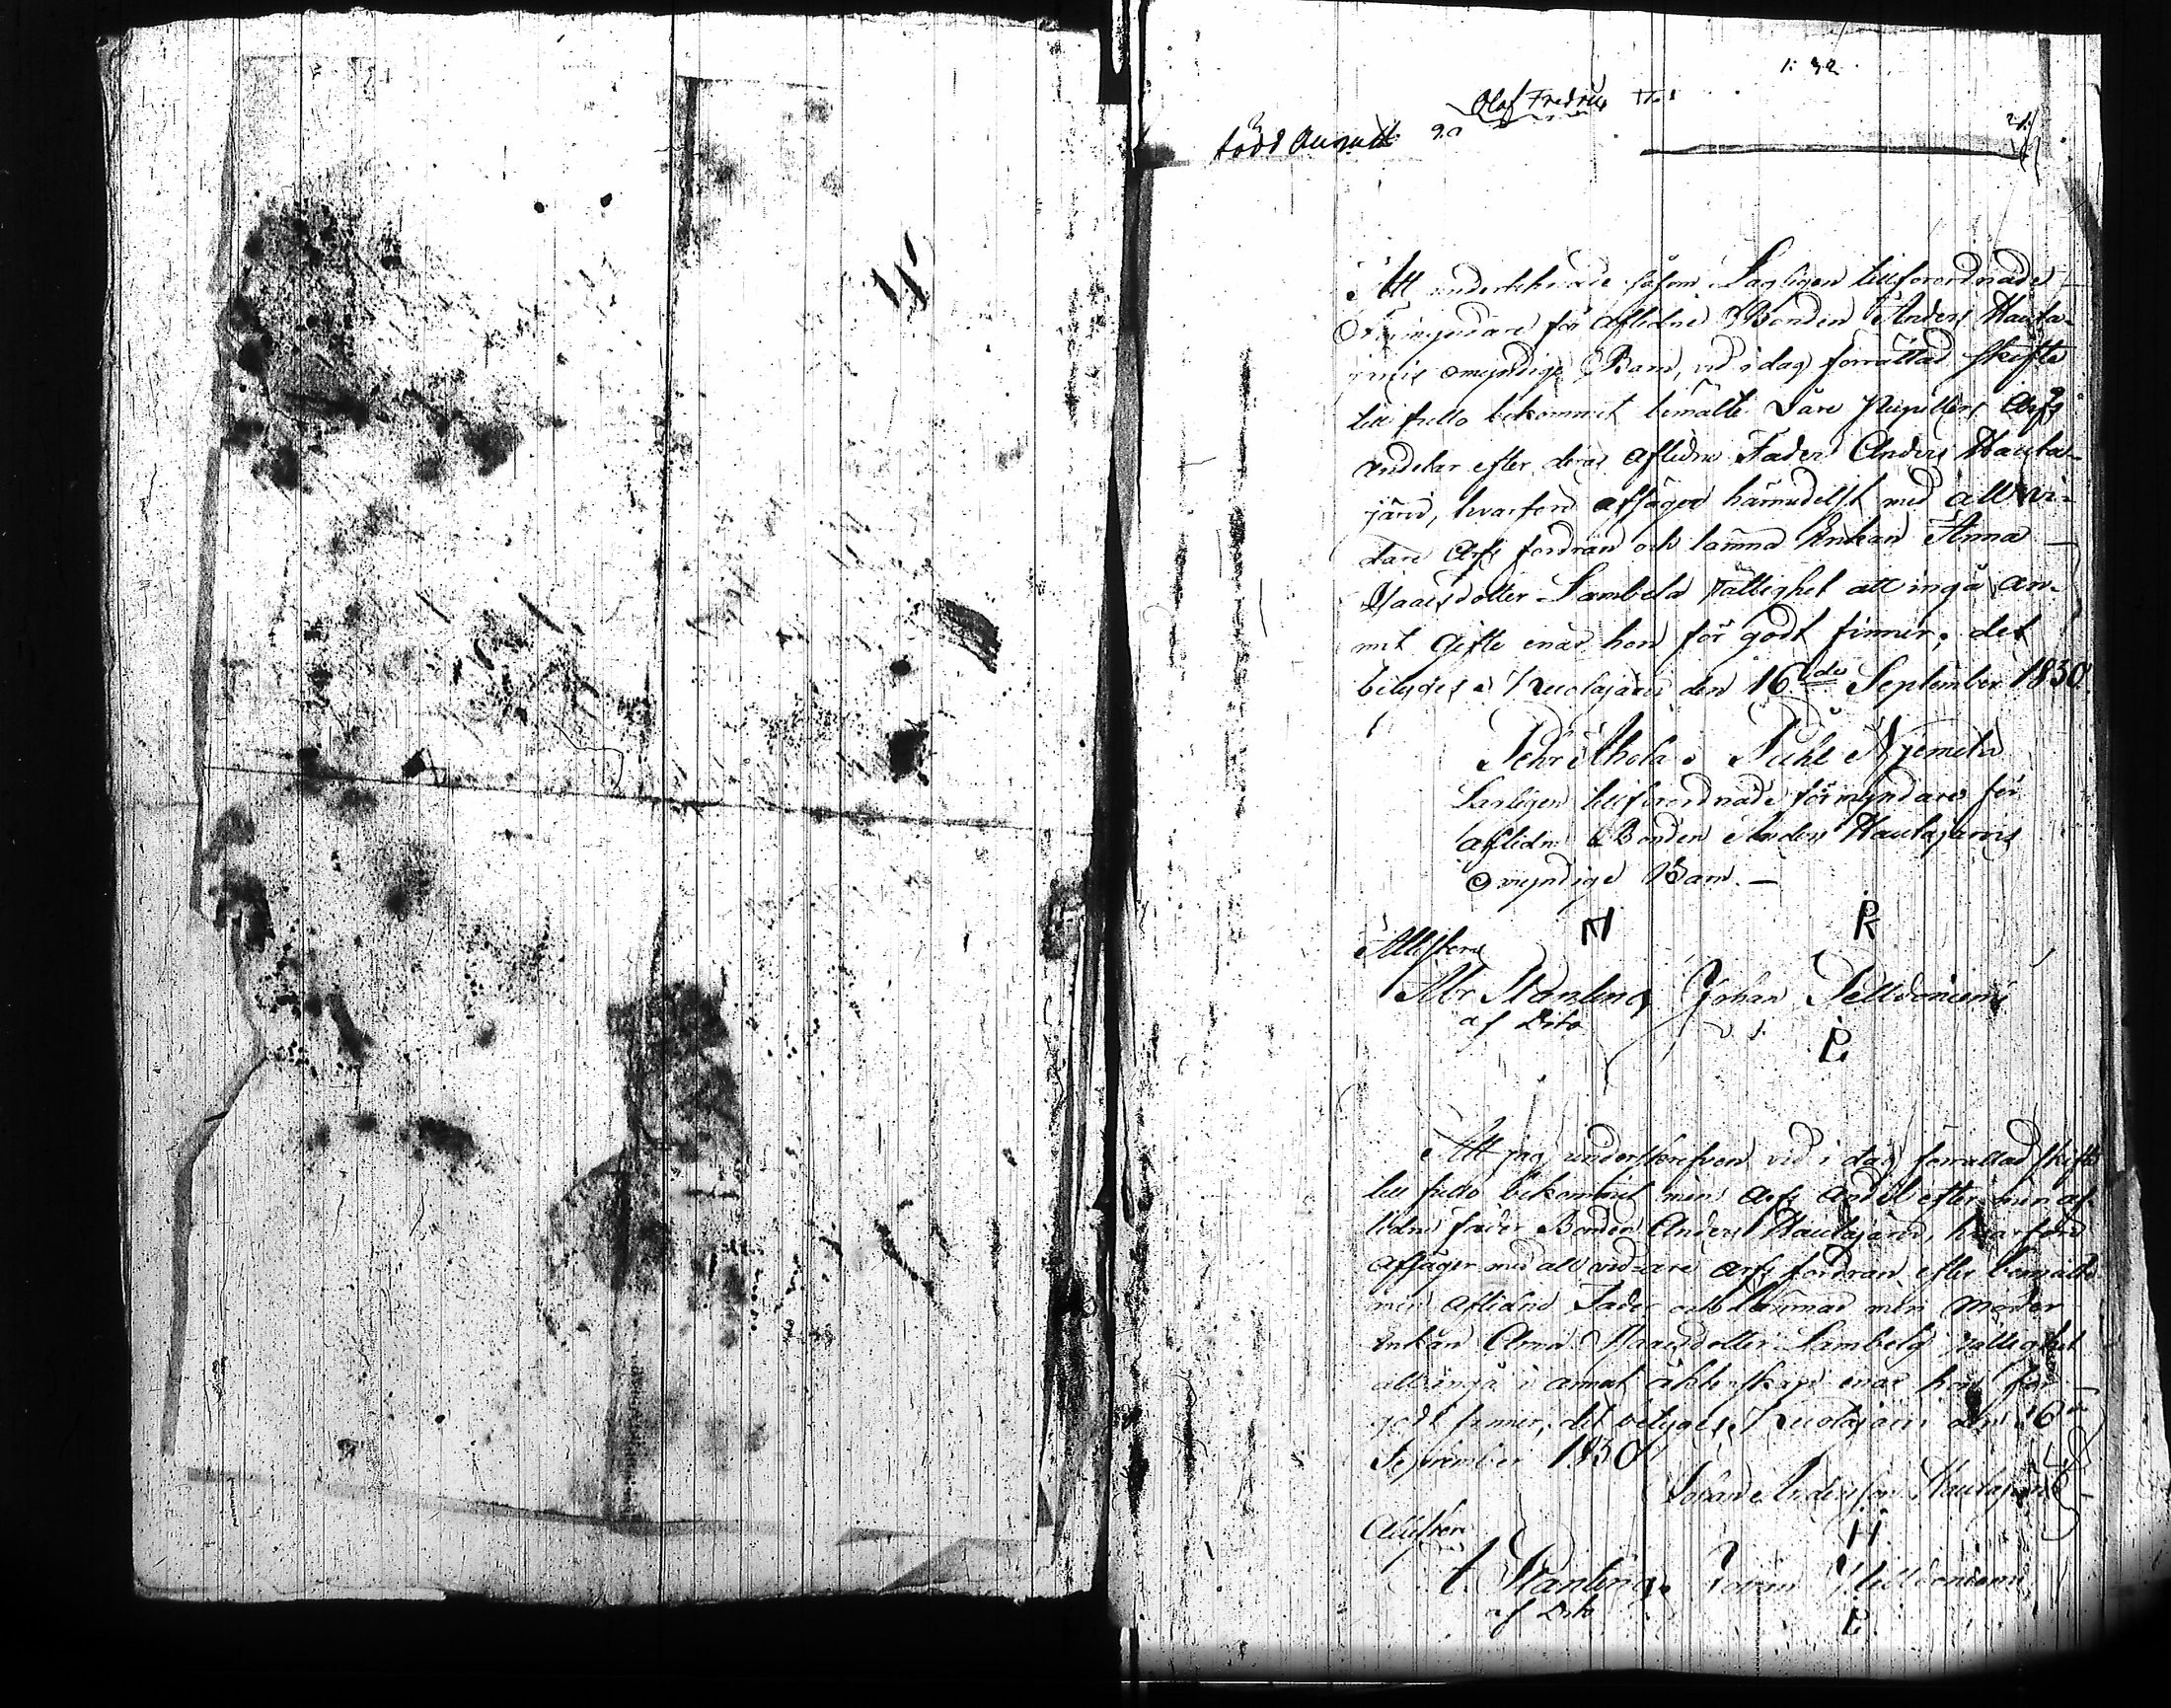 1: 32
Olaf Fredric
född Augusti
Att undertecknade såsom Lagligen tillforordnade
Förmyndare för aflidne Bonden Anders Hauta-
jervis omyndige Barn, vid i dag forrättad skifte
till fullo bekommit bemälte våre Pupillers Arfs
andelar efter deras aflidne Fader Anders Hauta-
järvi, hvarföre afsäger härmedelst med all vi-
dare Arfs fordran och lämna Enkan Anna
Klaaesdotter Lambela tillighet att ingå an-
nat Gifte enär hon för godt finner, det
betyges i Kuolajärvi den 16de September 1830
Pehr Ahola Pehr Njemela
Lagligen tillforordnade förmyndare för
aflidne Bonden Anders Hautajärvis
Omyndige Barn. —
R
Attestera
Abr Planting Johan Telldoniemi
af Dito
P
Att jag underskrefven vid i dag forrattad skifte
till fullo bekommit min Arfs Andel efter min af-
lidne fader Bonden Anders Hautajärvi, hvarföre
afsäger med all vidare arfs fordran efter bemälte
min aflidne Fader och lämnar min Moder
Enkan Anna Klaaesdotter Lambela tillighet
att ingå i annat äkktenskap enär hon för
godt finner, det betyges, Kuolajärvi den 16de
September 1830
Johan Andersson Hautajärvi
H
Attestera
Planting Johan Telldoniemi
af Dito
P